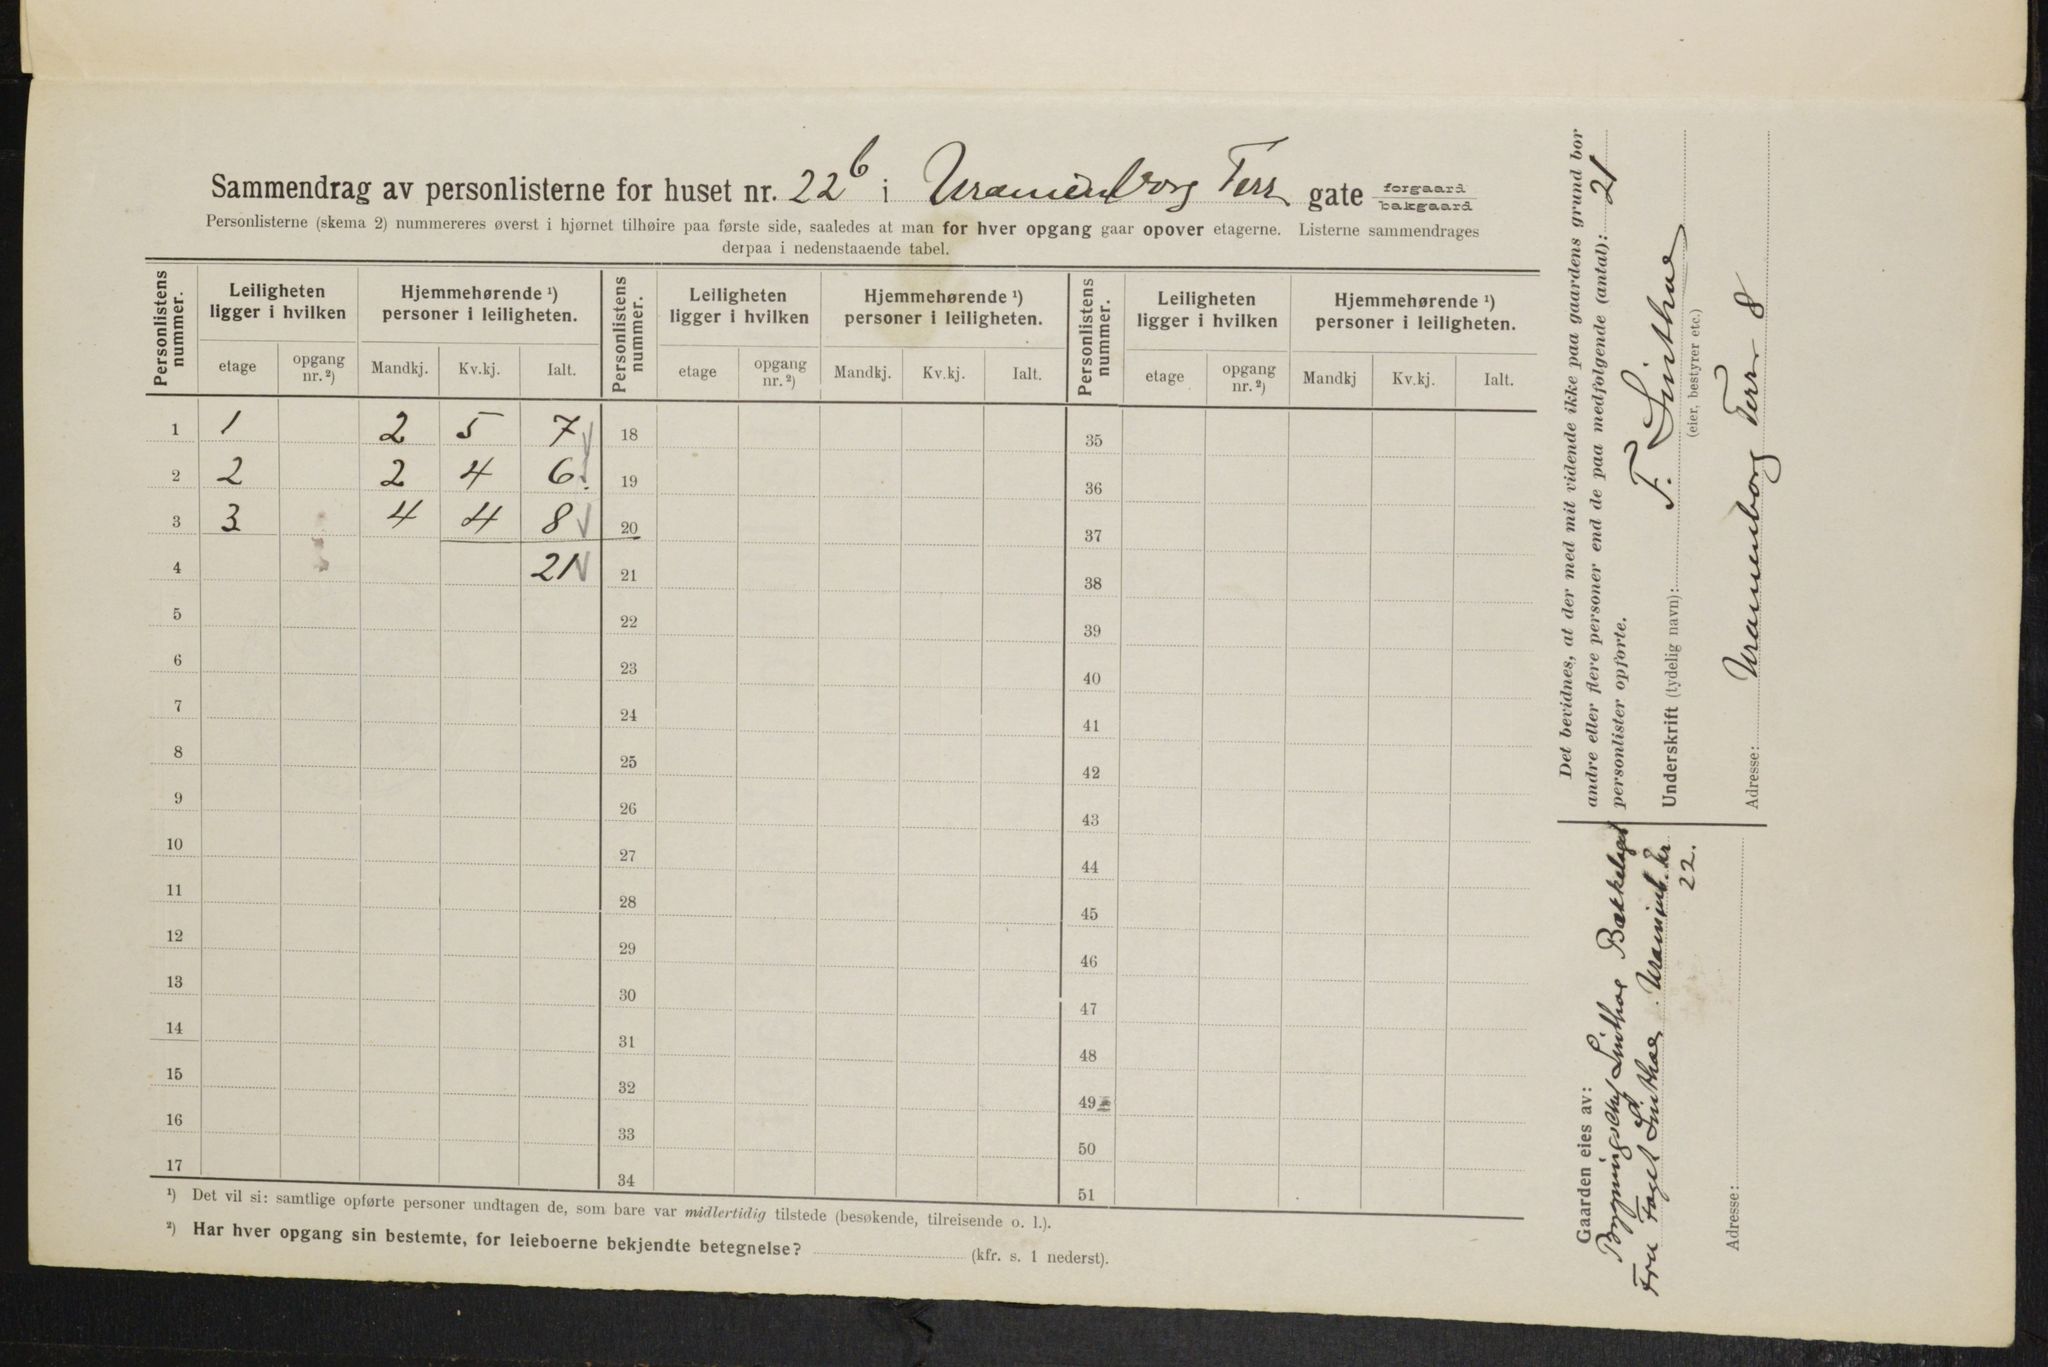 Sammendrag av personlisterne for huset nr. 22b i Uranienborg Terr gate forgaard bakgaard
Personlisterne (skema 2) nummereres øverst i hjørnet tilhøire paa første side, saaledes at man for hver opgang gaar opover etagerne. Listerne sammendrages
derpaa i nedenstaaende tabel.
Personlistens nummer. Leiligheten ligger i hvilken Hjemmehørende ¹) personer i leiligheten. Personlistens nummer. Leiligheten ligger i hvilken Hjemmehørende ¹) personer i leiligheten. Personlistens nummer. Leiligheten ligger i hvilken Hjemmehørende ¹) personer i leiligheten.
etage opgang nr. ²) Mandkj. Kv.kj. Ialt. etage opgang nr. ²) Mandkj. Kv.kj. Ialt. etage opgang nr. ²) Mandkj Kv.kj. Ialt.
1 1 2 5 7 18 35
2 2 2 4 6 19 36
3 3 4 4 8 20 37
4 21 21 38
5 22 39
6 23 40
7 24 41
8 25 42
9 26 43
10 27 44
11 28 45
12 29 46
13 30 47
14 31 48
15 32 49
16 33 50
17 34 51
¹) Det vil si: samtlige opførte personer undtagen de, som bare var midlertidig tilstede (besøkende, tilreisende o. l.).
²) Har hver opgang sin bestemte, for leieboerne bekjendte betegnelse? (kfr. s. 1 nederst).
Det bevidnes, at der med mit vidende ikke paa gaardens grund bor
andre eller flere personer end de paa medfølgende (antal): 21
personlister opførte.
Underskrift (tydelig navn): F. Linthoe
(eier, bestyrer etc.)
Adresse: Uranienborg Terr 8
Gaarden eies av:
Linthoe Bækkelaget
Fru Linthoe
22.
Adresse: